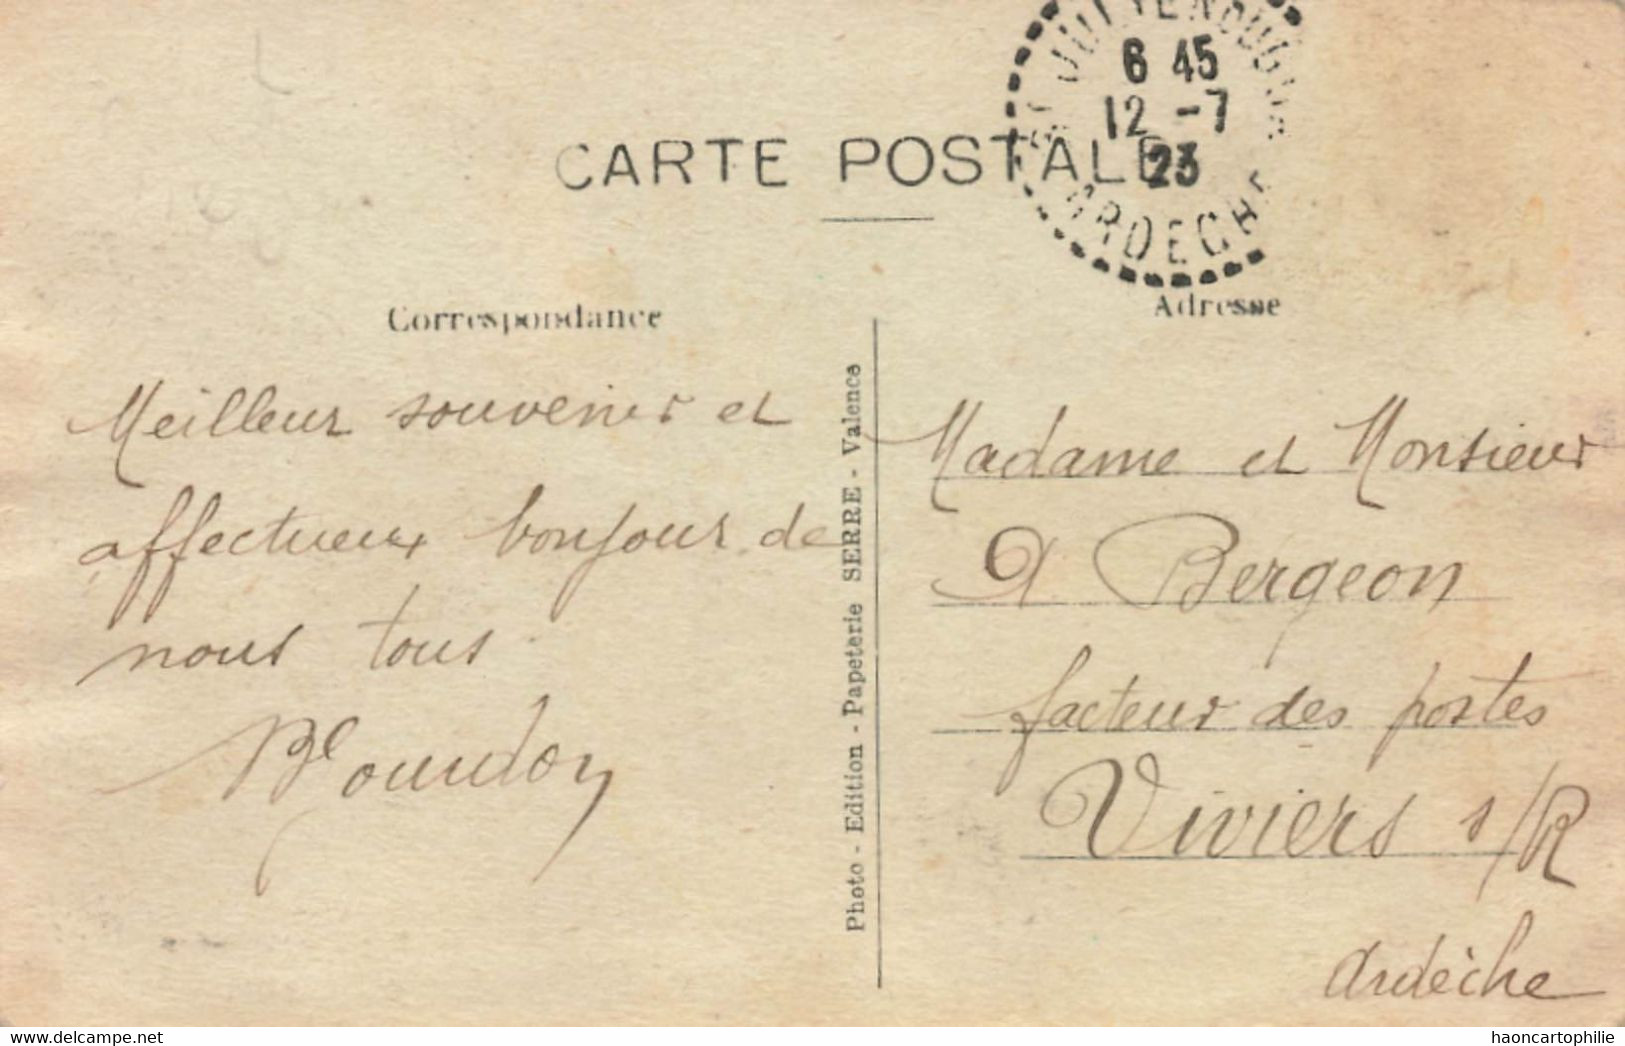 CARTE POSTALE
6 45
12 -7
23
ARDECHE
Correspondance
Adresse
Meilleur souvenir et
affectueux bonjour de
nous tous.
Photo - Edition - Papeterie SERRE - Valence
Madame et Monsieur
A Bergeon
facteur des postes
Viviers s/R
Ardèche
delcampe.net
haoncartophilie